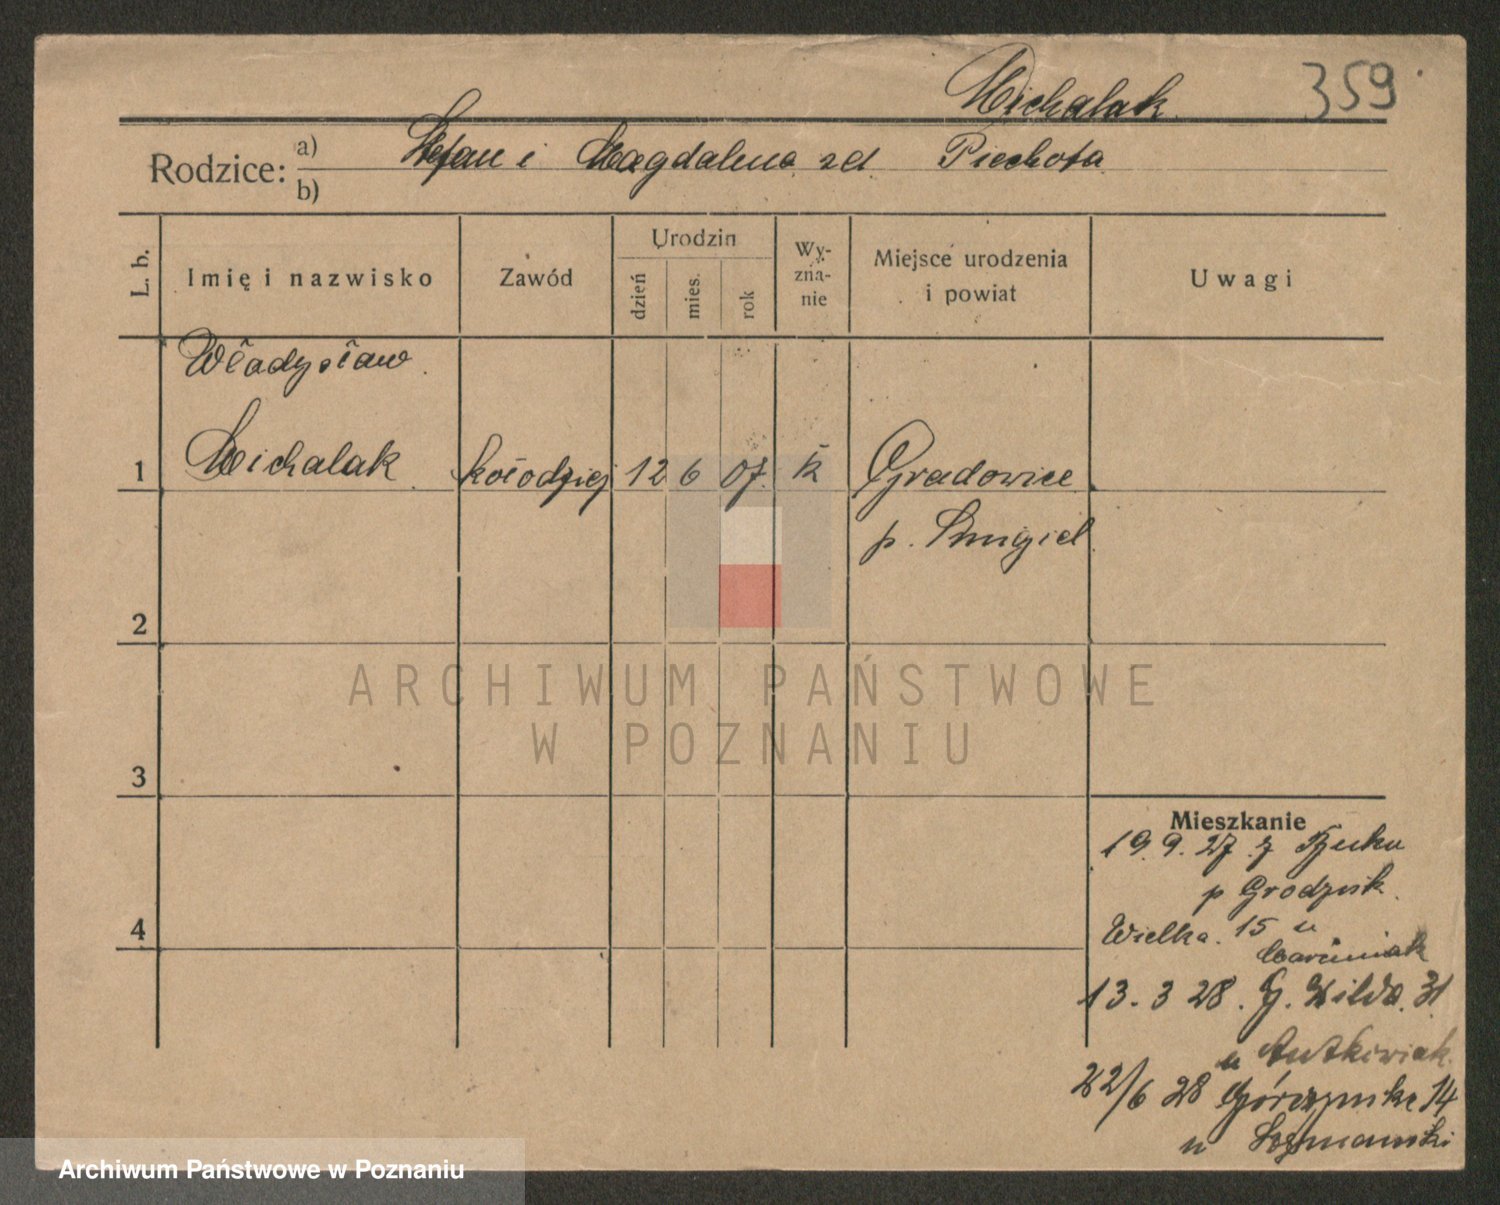 Michalak 359
Rodzice: a) Stefan i Magdalena zd. Piechota
b)
L. b.
Imię i nazwisko
Zawód
Urodzin
dzień
mies.
rok
Wy-
zna-
nie
Miejsce urodzenia
i powiat
Uwagi
Władysław
1 Michalak kołodziej 12 6 07. k Gradowice
p. Śmigiel
2
ARCHIWUM PAŃSTWOWE
W POZNANIU
3
Mieszkanie
19. 9. 27 z Buku
p Grodzisk
4
Wielka. 15 u
Marciniak
13. 3 28. G. Wilda. 31
u Antkowiak
22/6 28 Górczyńska 14
u Szymański
Archiwum Państwowe w Poznaniu